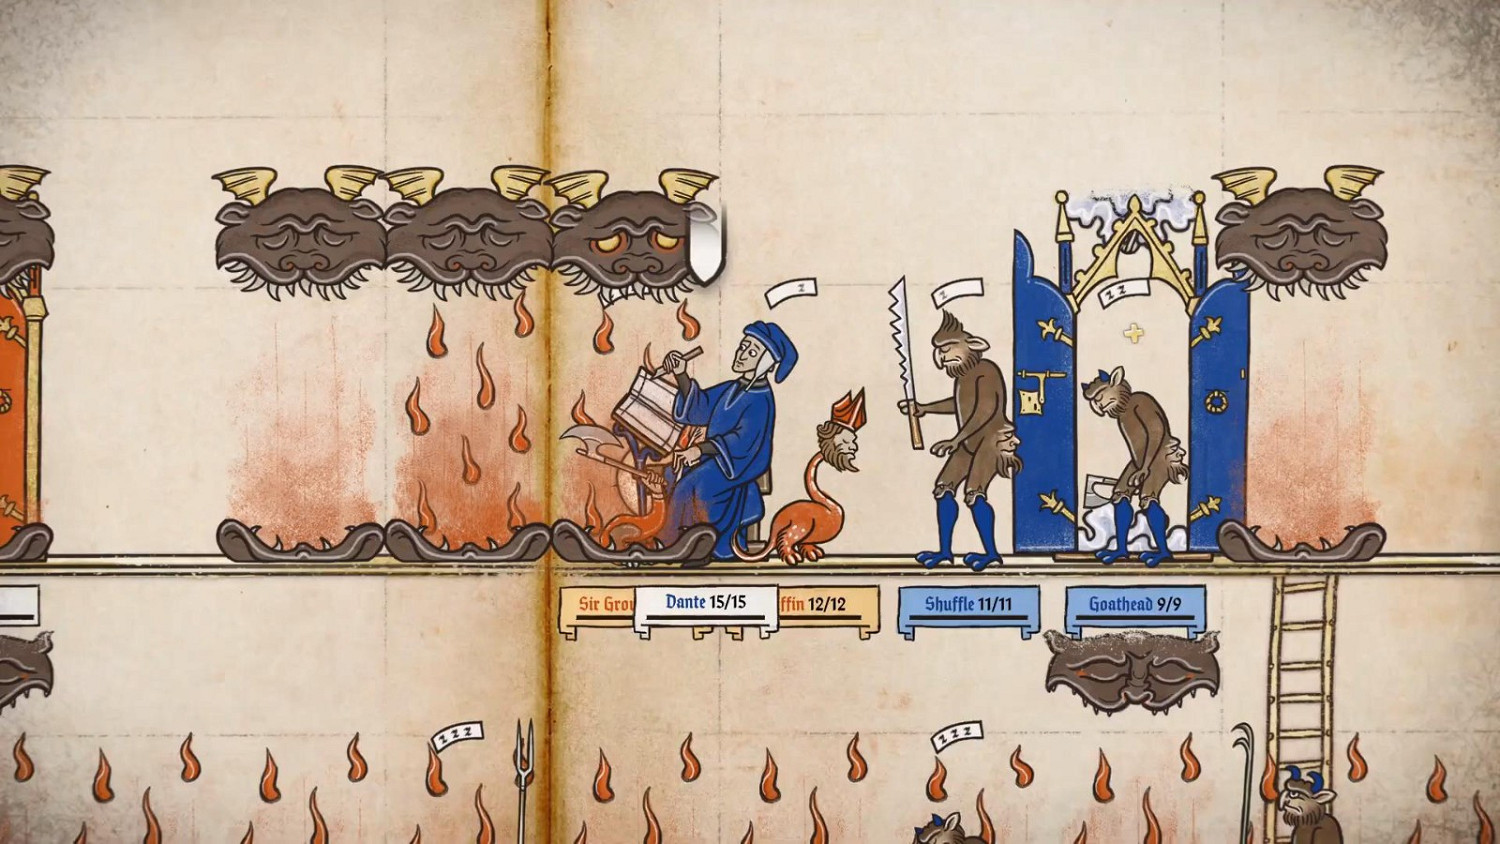 z
z
z z
Sir Grou
Dante 15/15
ffin 12/12
Shuffle 11/11
Goathead 9/9
z z z
z z z